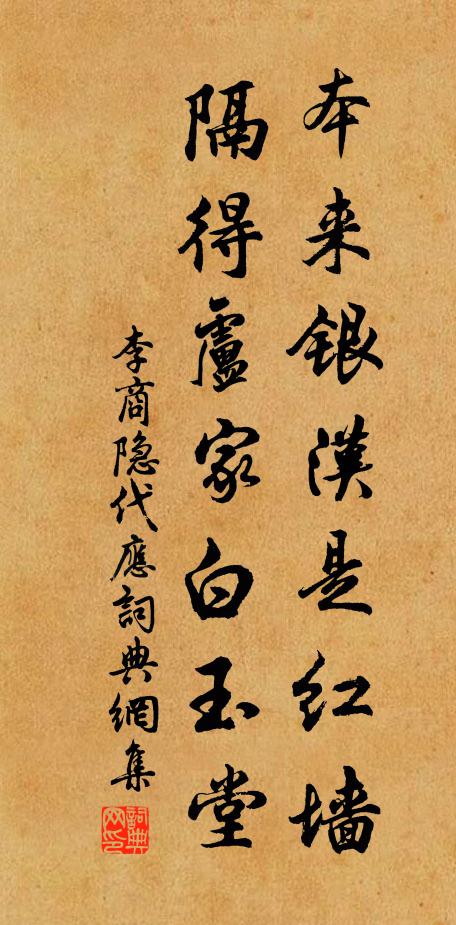 本来银漢是红墙
隔得盧家白玉堂
李商隐代應詞典網集
詞典网印